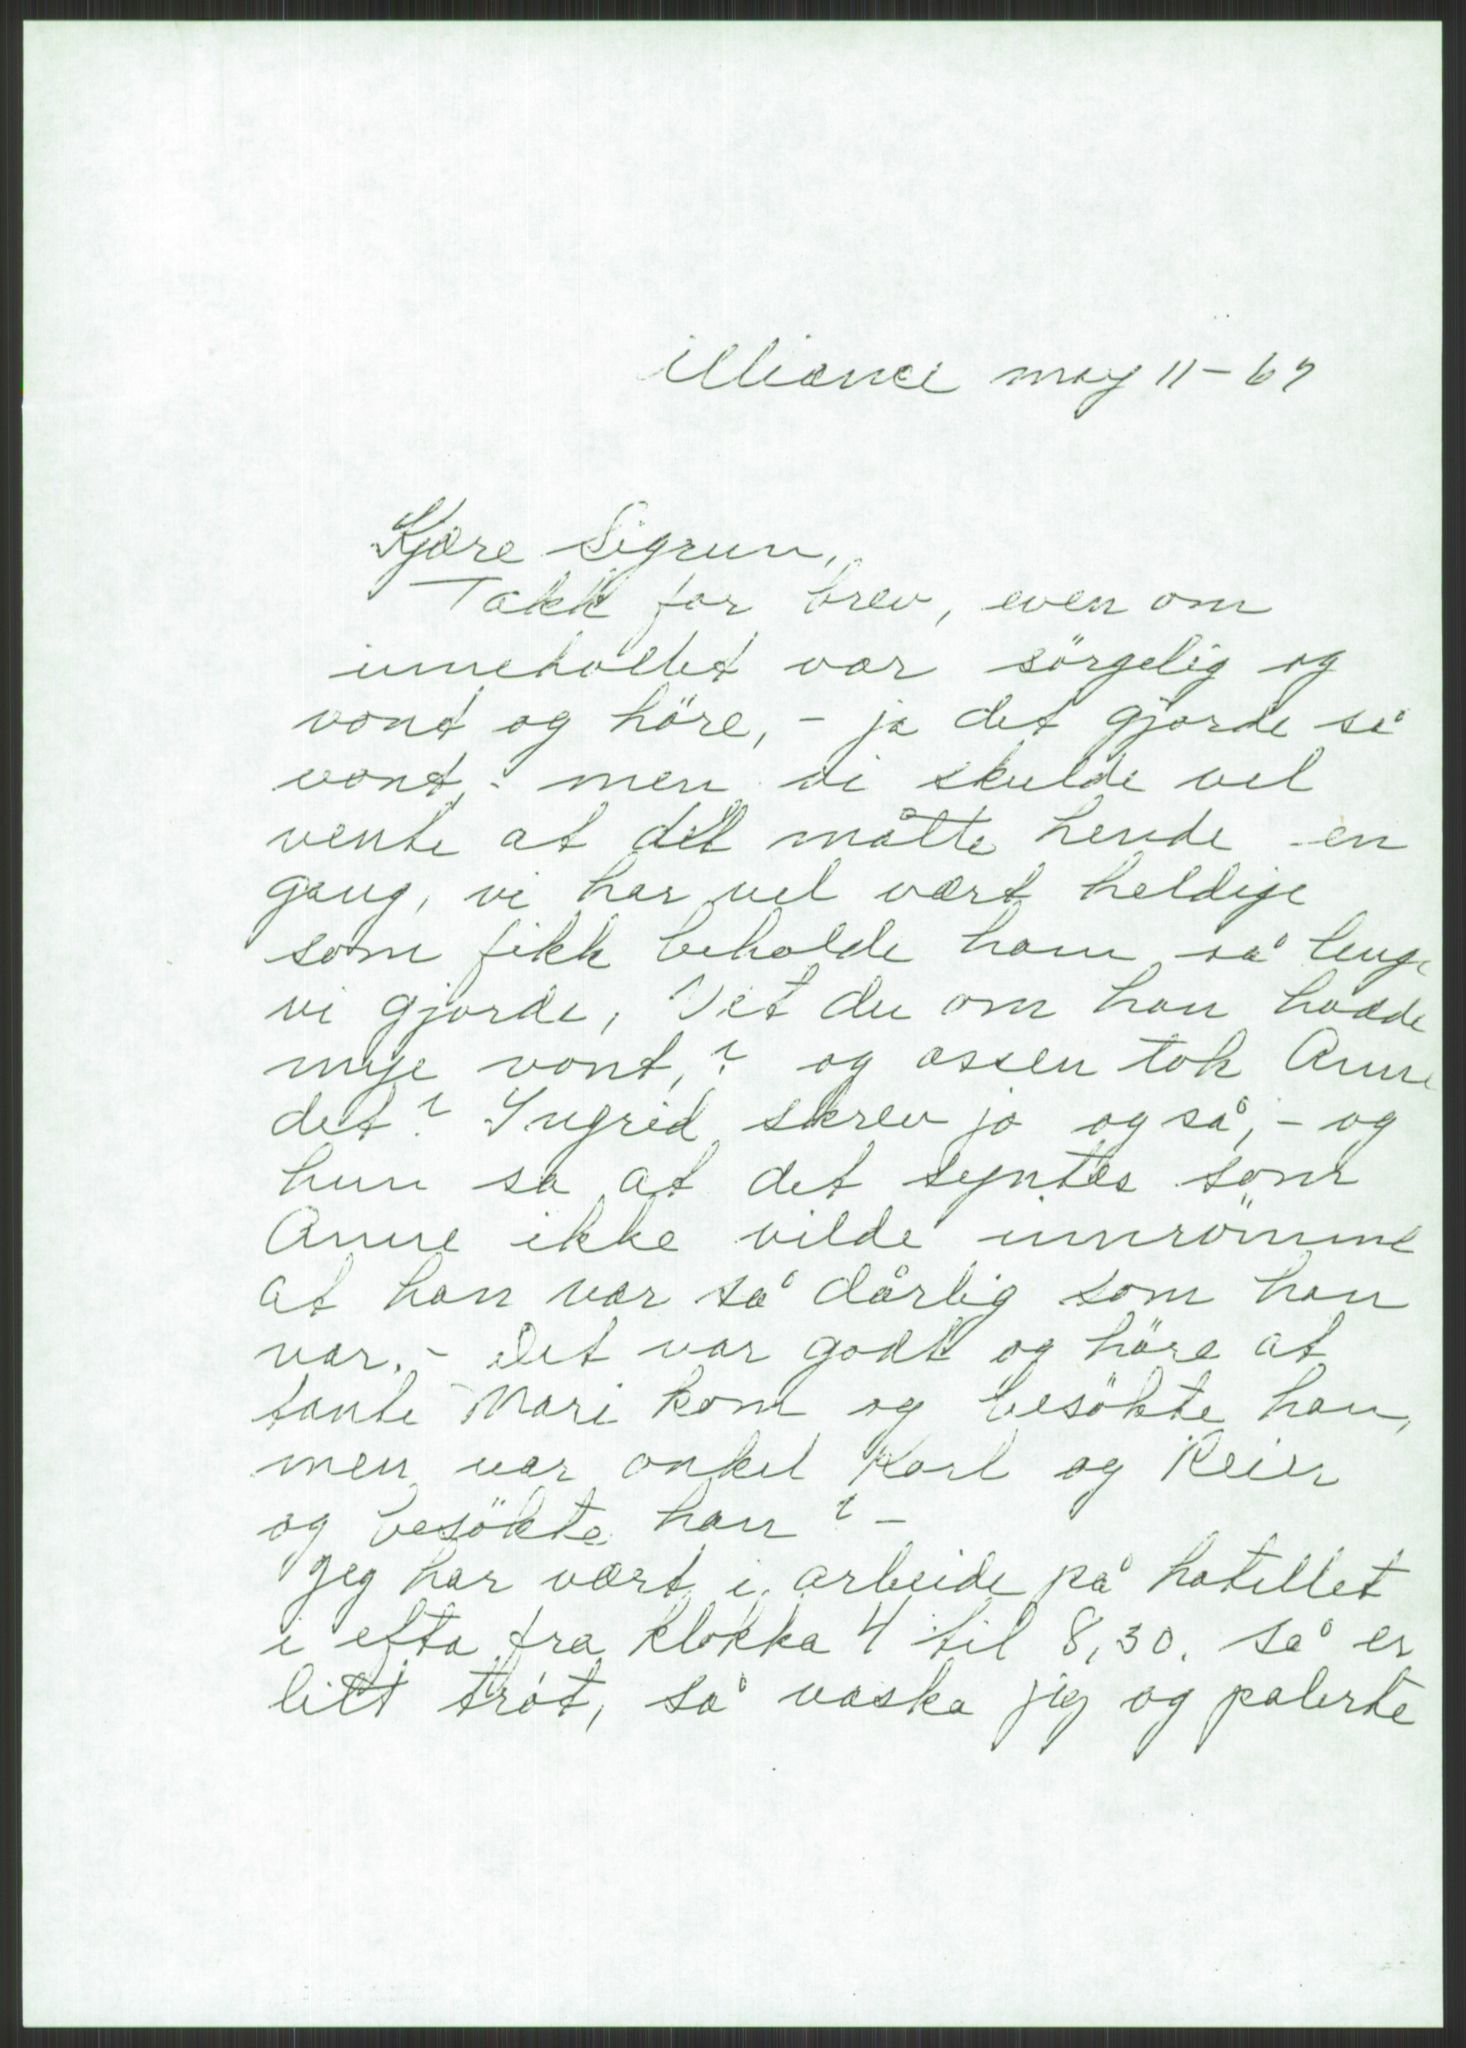 Alliance may 11-67
Kjære Sigrun,
Takk for brev, even om
inneholdet var sörgelig og
vont og höre, - ja det gjorde så
vont, - men vi skulde vel
vente at det måtte hende en
gang, vi har vel vært heldige
som fikk beholde ham så lenge
vi gjorde, Vet du om han hadde
mye vont,? og åssen tok Anne
det? Ingrid skrev jo også, - og
hun sa at det syntes som
Anne ikke vilde innrömme
at han var så dårlig som han
var. - Det var godt og höre at
tante Mari kom og besökte han,
men var onkel Karl og Reier
og besökte han? -
Jeg har vært i arbeide på hotellet
i efta fra klokka 4 til 8,30. så er
litt tröt, så vaska jeg og polerte